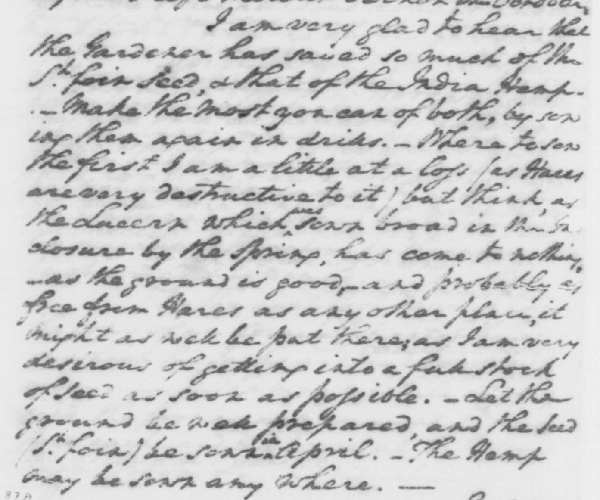 I am very glad to hear that
the Gardener has saved so much of the
St. foin seed, & that of the India Hemp.
– Make the most you can of both, by sow
ing them again in drills. – Where to sow
the first I am a little at a loss (as Hares
are very destructive to it) but think, as
the Lucern which was sown broad in the In
closure by the Spring, has come to nothing,
– as the ground is good, – and probably as
free from Hares as any other place, it
might as well be put there; as I am very
desirous of getting into a full stock
of seed as soon as possible. – Let the
ground be well prepared, and the seed
(St. foin) be sown in April. – The Hemp
may be sown any where. –